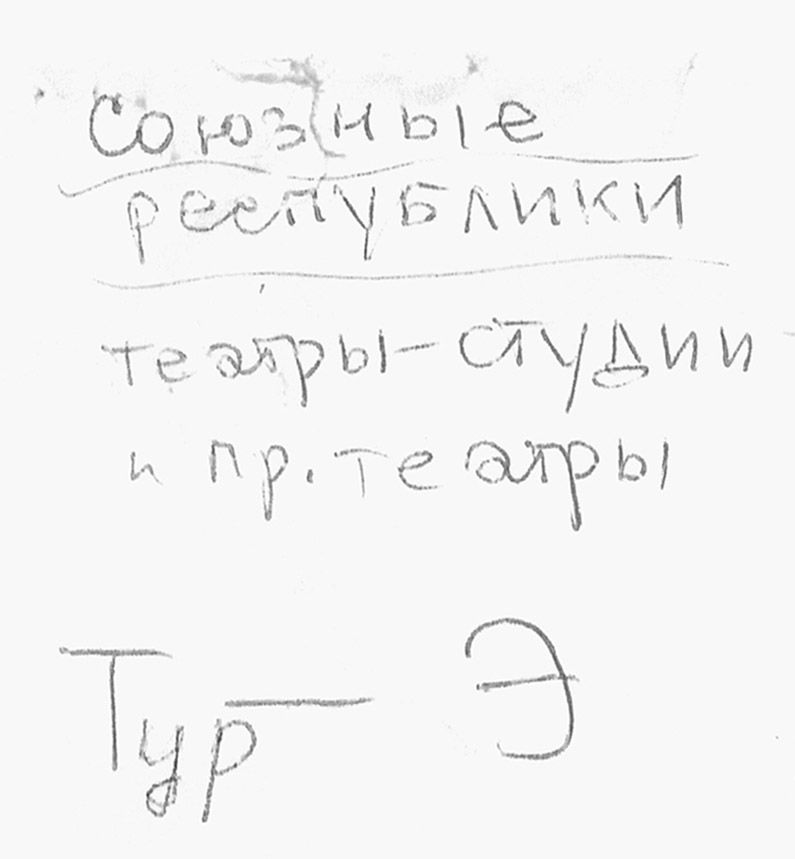 Союзные
республики
театры-студии
и пр. театры
Тур — Э